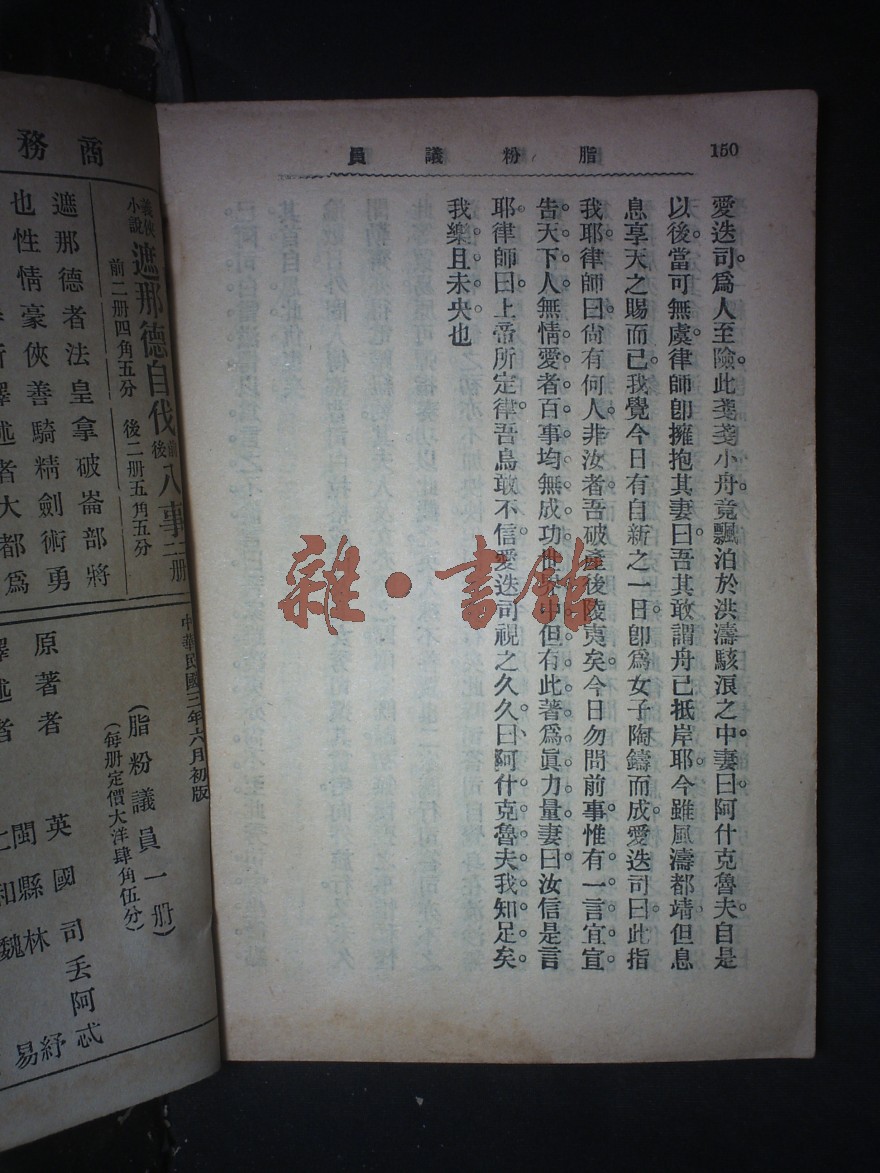 150
脂粉議員
愛迭司爲人至險。此戔戔小舟。竟飄泊於洪濤駭浪之中。妻曰。阿什克魯夫。自是
以後。當可無虞。律師卽擁抱其妻曰。吾其敢謂舟已抵岸耶。今雖風濤都靖。但息
息享天之賜而已。我覺今日有自新之一日。卽爲女子陶鑄而成。愛迭司曰。此指
我耶。律師曰。尙有何人。非汝者。吾破產後陵夷矣。今日勿問前事。惟有一言。宜宣
告天下。人無情愛者。百事均無成功。世界中但有此著爲眞力量。妻曰。汝信是言
耶。律師曰。上帝所定律。吾烏敢不信。愛迭司視之久久。曰。阿什克魯夫。我知足矣。
我樂且未央也
商務
義俠小說
遮那德自伐前後八事二册
前二册四角五分 後二册五角五分
遮那德者法皇拿破崙部將
也性情豪俠善騎精劍術勇
譯述者大都爲
中華民國三年六月初版
(脂粉議員一册)
(每册定價大洋肆角伍分)
原著者 英國 司丢阿忒
譯述者 閩縣 林紓
仁和 魏易
雜·書館